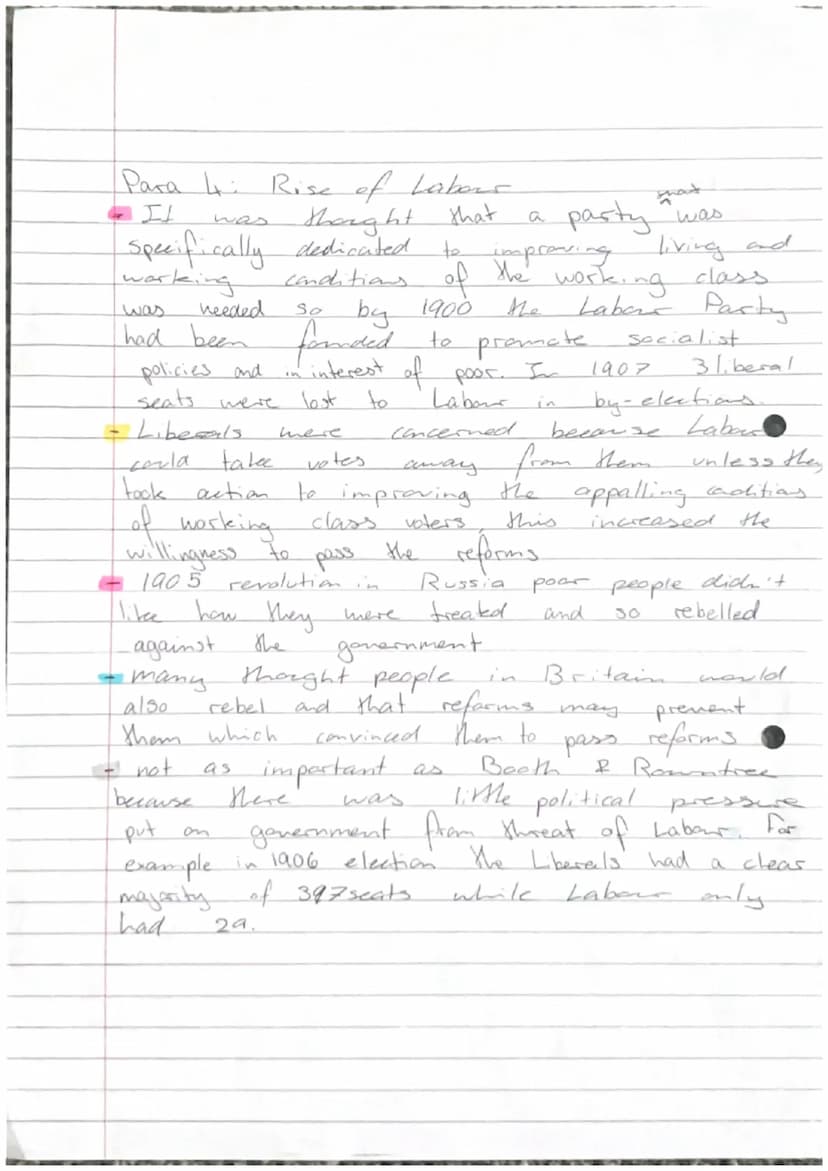 Para 4: Rise of Labour
that
- It was thought that a party ^ was
specifically dedicated to improving living and
working conditions of the working class
was needed so by 1900 the Labour Party
had been founded to promote socialist
policies and in interest of poor. In 1907 3 liberal
seats were lost to Labour in by-elections.
- Liberals were concerned because Labour
could take votes away from them unless they
took action to improving the appalling conditions
of working class voters, this increased the
willingness to pass the reforms
- 1905 revolution in Russia poor people didn't
like how they were treated and so rebelled
against the government
- many thought people in Britain would
also rebel and that reforms may prevent
them which convinced them to pass reforms
- not as important as Booth & Rowntree
because there was little political pressure
put on government from threat of Labour. For
example in 1906 election the Liberals had a clear
majority of 397 seats while Labour only
had 29.